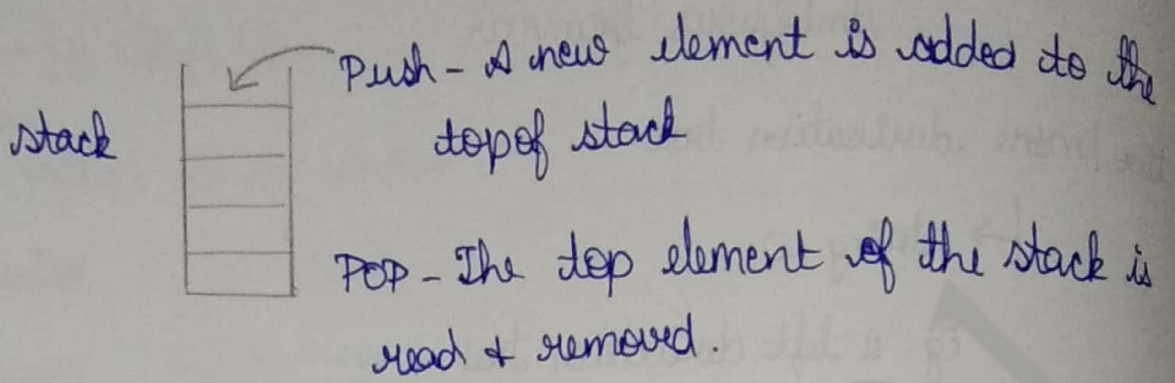 Push - A new element is added to the
stack
top of stack
POP - The top element of the stack is
read & removed.